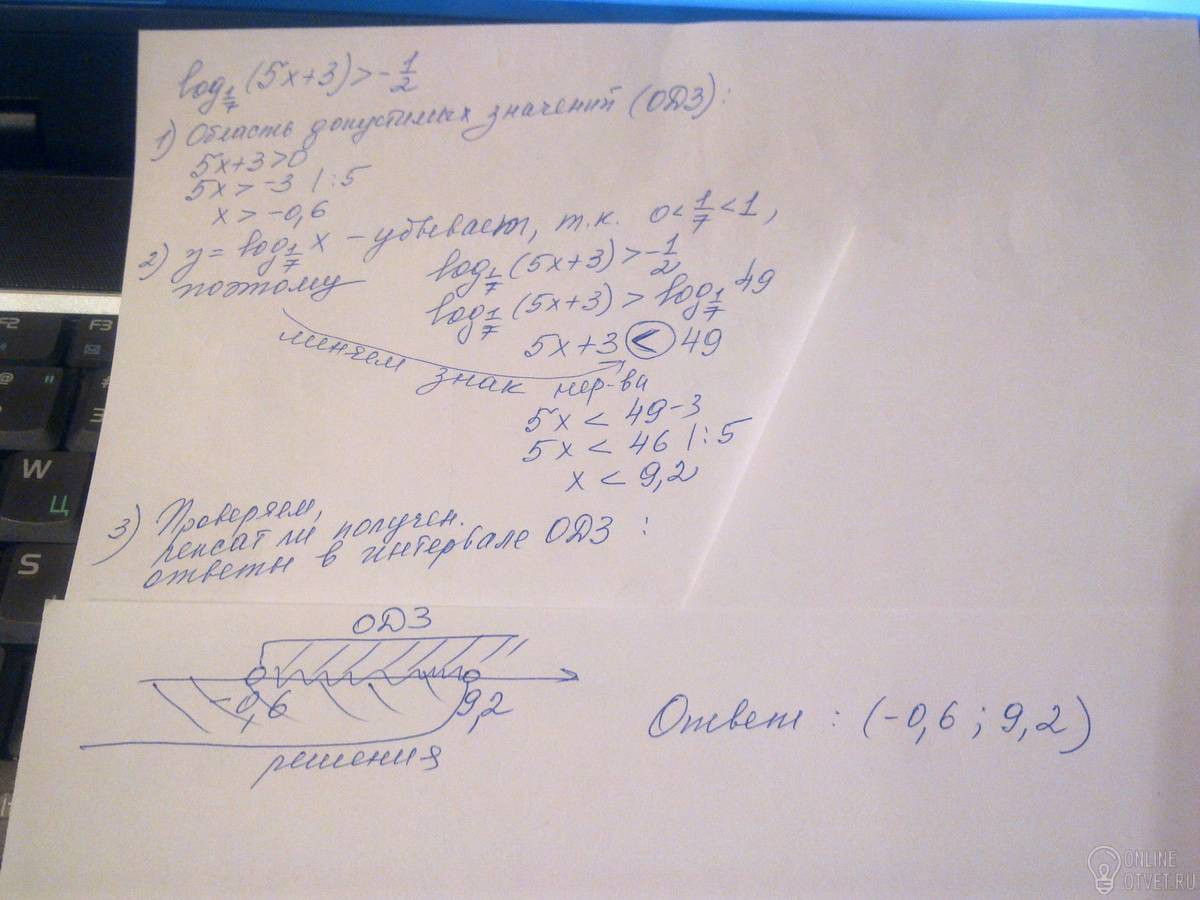 log 1/7 (5x+3) > -1/2
1) Область допустимых значений (ОДЗ):
5x+3>0
5x > -3 | :5
x > -0,6
2) y = log 1/7 x - убывает, т.к. 0 < 1/7 < 1,
поэтому
log 1/7 (5x+3) > -1/2
log 1/7 (5x+3) > log 1/7 49
5x+3 < 49
меняем знак нер-ва
5x < 49-3
5x < 46 | :5
x < 9,2
3) Проверяем,
лежат ли получен.
ответы в интервале ОДЗ :
ОДЗ
-0,6 9,2
решения
Ответ : (-0,6 ; 9,2)
F2 F3
@ "
3
W
Ц
S
ONLINE
OTVET.RU